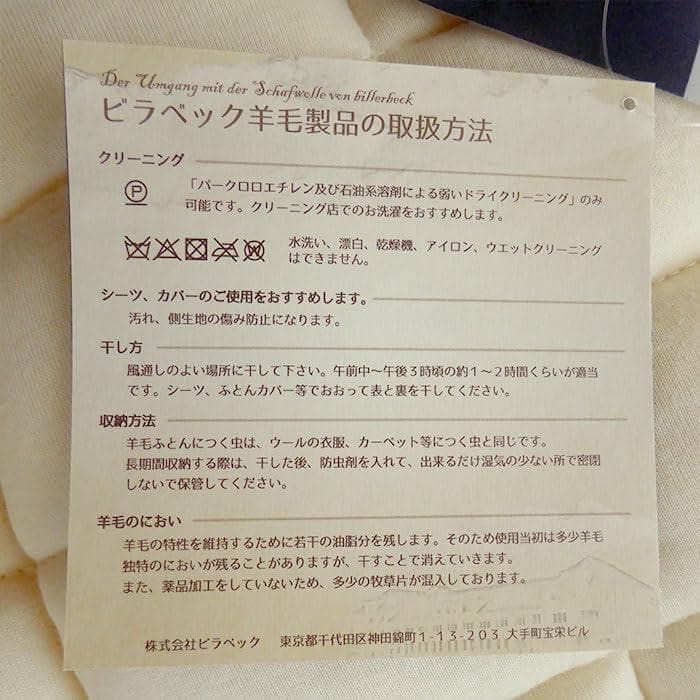 Der Umgang mit der Schafwolle von billerbeck
ビラベック羊毛製品の取扱方法
クリーニング
Ⓟ 「パークロロエチレン及び石油系溶剤による弱いドライクリーニング」のみ
可能です。クリーニング店でのお洗濯をおすすめします。
水洗い、漂白、乾燥機、アイロン、ウエットクリーニング
はできません。
シーツ、カバーのご使用をおすすめします。
汚れ、側生地の傷み防止になります。
干し方
風通しのよい場所に干して下さい。午前中～午後3時頃の約1～2時間くらいが適当
です。シーツ、ふとんカバー等でおおって表と裏を干してください。
収納方法
羊毛ふとんにつく虫は、ウールの衣服、カーペット等につく虫と同じです。
長期間収納する際は、干した後、防虫剤を入れて、出来るだけ湿気の少ない所で密閉
しないで保管してください。
羊毛のにおい
羊毛の特性を維持するために若干の油脂分を残します。そのため使用当初は多少羊毛
独特のにおいが残ることがありますが、干すことで消えていきます。
また、薬品加工をしていないため、多少の牧草片が混入しております。
株式会社ビラベック 東京都千代田区神田錦町1-13-203 大手町宝栄ビル